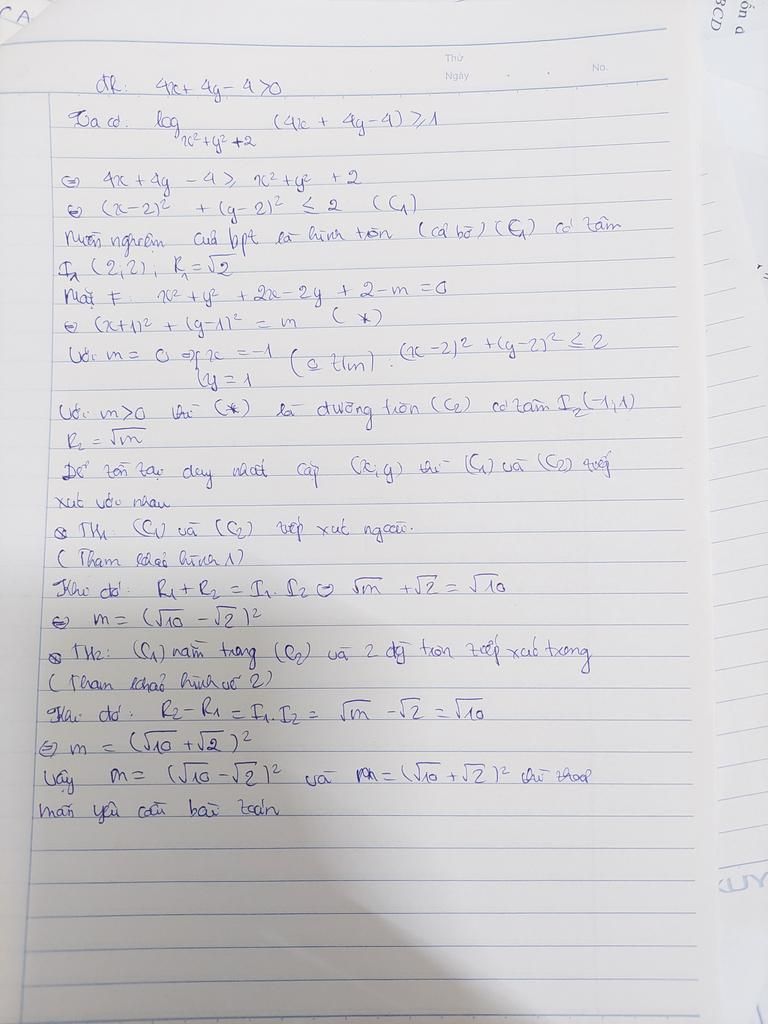 CA
Thứ
Ngày . .
No.
đk: 4x + 4y - 4 > 0
Ta có: log_{x²+y²+2} (4x + 4y - 4) ≥ 1
⇔ 4x + 4y - 4 ≥ x² + y² + 2
⇔ (x-2)² + (y-2)² ≤ 2 (C₁)
Miền nghiệm của bpt là hình tròn (cả bờ) (C₁) có tâm
I₁ (2;2), R₁ = √2
Mặt ≠: x² + y² + 2x - 2y + 2 - m = 0
⇔ (x+1)² + (y-1)² = m (*)
Với m = 0 ⇒ { x = -1
y = 1 (o t/m): (x-2)² + (y-2)² ≤ 2
Với m > 0 thì (*) là đường tròn (C₂) có tâm I₂(-1;1)
R₂ = √m
Để tồn tại duy nhất cặp (x;y) thì (C₁) và (C₂) tiếp
xúc với nhau
TH₁: (C₁) và (C₂) tiếp xúc ngoài.
(Tham khảo hình 1)
Khi đó: R₁ + R₂ = I₁.I₂ ⇔ √m + √2 = √10
⇔ m = (√10 - √2)²
TH2: (C₁) nằm trong (C₂) và 2 đg tròn tiếp xúc trong
(Tham khảo hình vẽ 2)
Khi đó: R₂ - R₁ = I₁.I₂ = √m - √2 = √10
⇔ m = (√10 + √2)²
Vậy m = (√10 - √2)² và m = (√10 + √2)² thì thoả
mãn yêu cầu bài toán
BCD